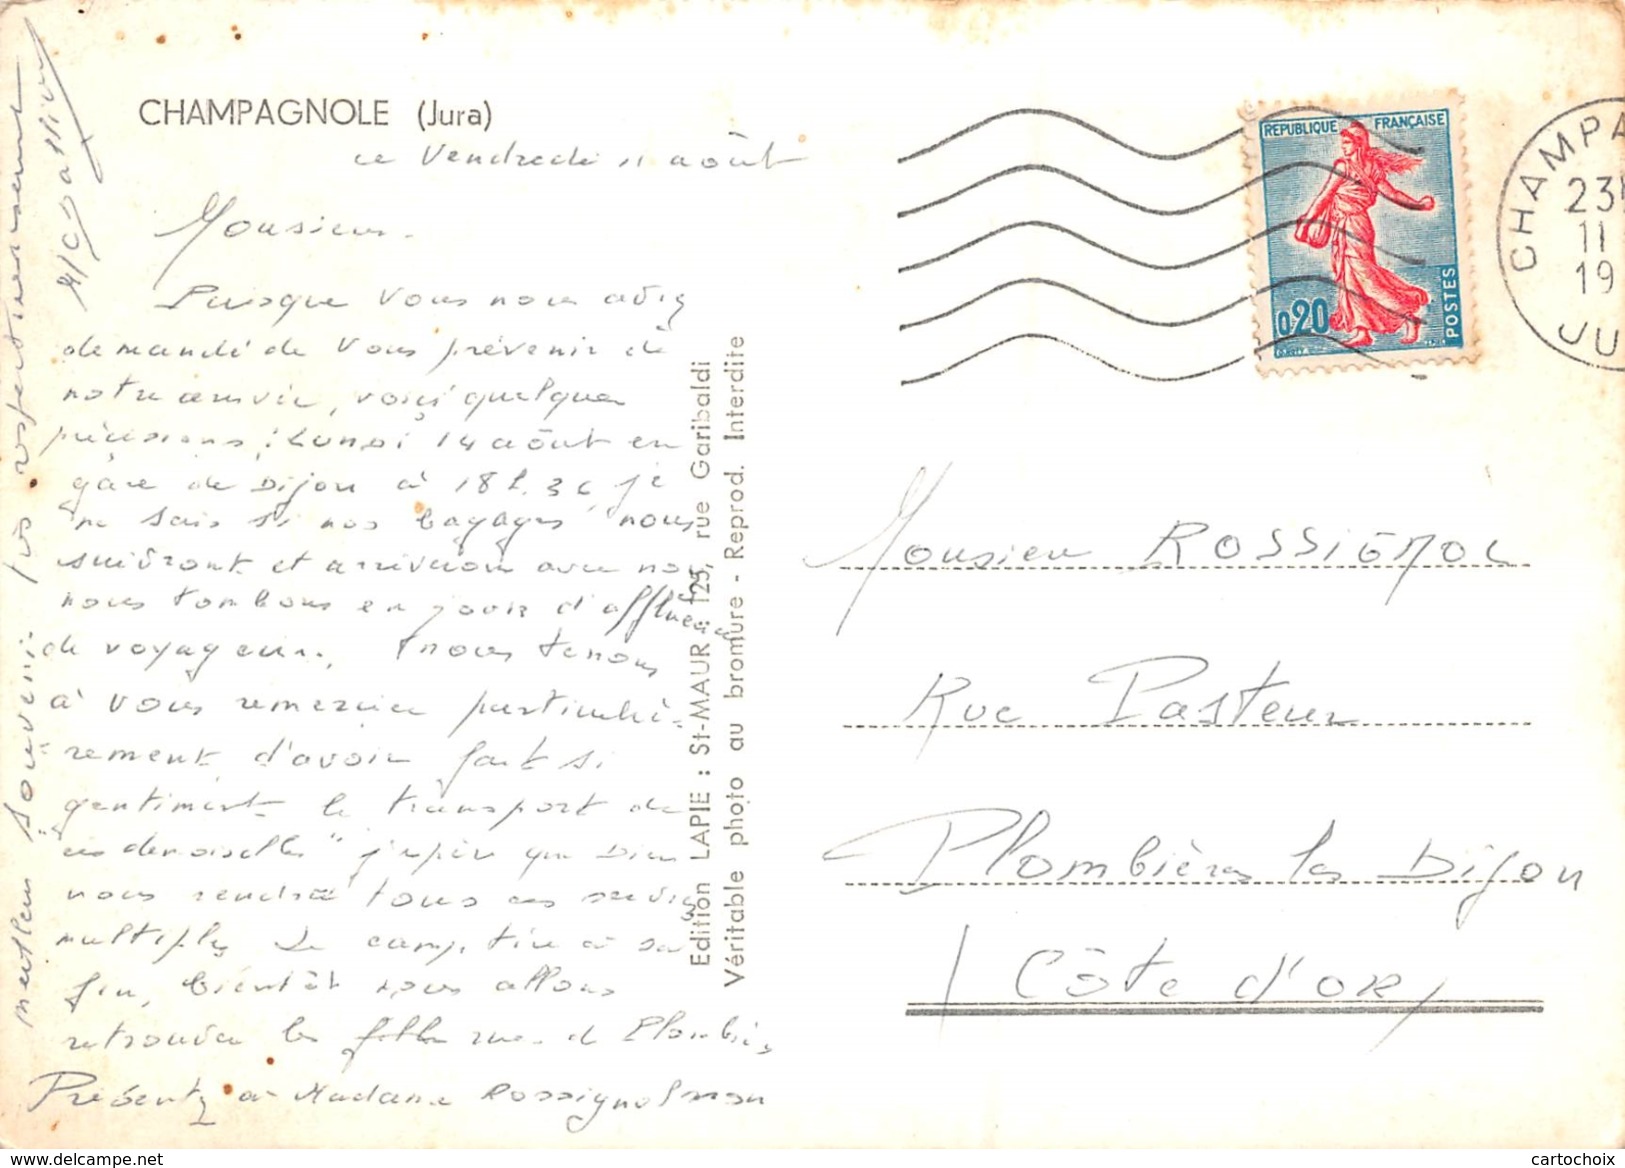 CHAMPAGNOLE (Jura)
ce Vendredi 11 août
Monsieur.
Puisque vous nous aviez
demandé de vous prévenir de
notre arrivée, voici quelques
précisions : Lundi 14 août en
gare de Dijon à 18h.36, je
ne sais si nos bagages nous
suivront et arriveront avec nous
nous tombons en jour d'affluence
de voyageurs. nous tenons
à vous remercier particuliè-
rement d'avoir fait si
gentiment le transport de
ces demoiselles" j'espère que Dieu
nous rendra tous ces services
multiples. Le camp tire à sa
fin, bientôt nous allons
retrouver les rues de Plombières
Présentez à Madame Rossignol mon
meilleur souvenir.
très respectueusement
Edition LAPIE : St-MAUR : 125, rue Garibaldi
Véritable photo au bromure - Reprod. Interdite
REPUBLIQUE FRANÇAISE
0,20
POSTES
CHAMPA
23H
11
19
JU
Monsieur ROSSIGNOL
Rue Pasteur
Plombières les Dijon
(Côte d'OR)
delcampe.net
cartochoix